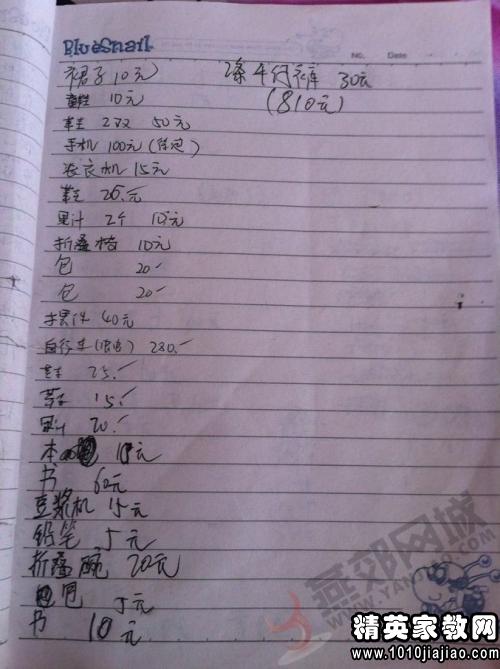 BlueSnail
No. Date
裙子 10元
2条牛仔裤 30元
(810元)
10元
鞋 2双 50元
手机 100元
洗衣机 15元
果汁 2个 10元
折叠椅 10元
包 20.-
包 20.-
40元
自行车 280.-
25.-
15.-
果汁 20.-
本 元
书 60元
豆浆机 15元
铅笔 5元
折叠碗 20元
5元
书 10元
燕郊网城
WWW.YANJIAO.COM
精英家教网
www.1010jiajiao.com